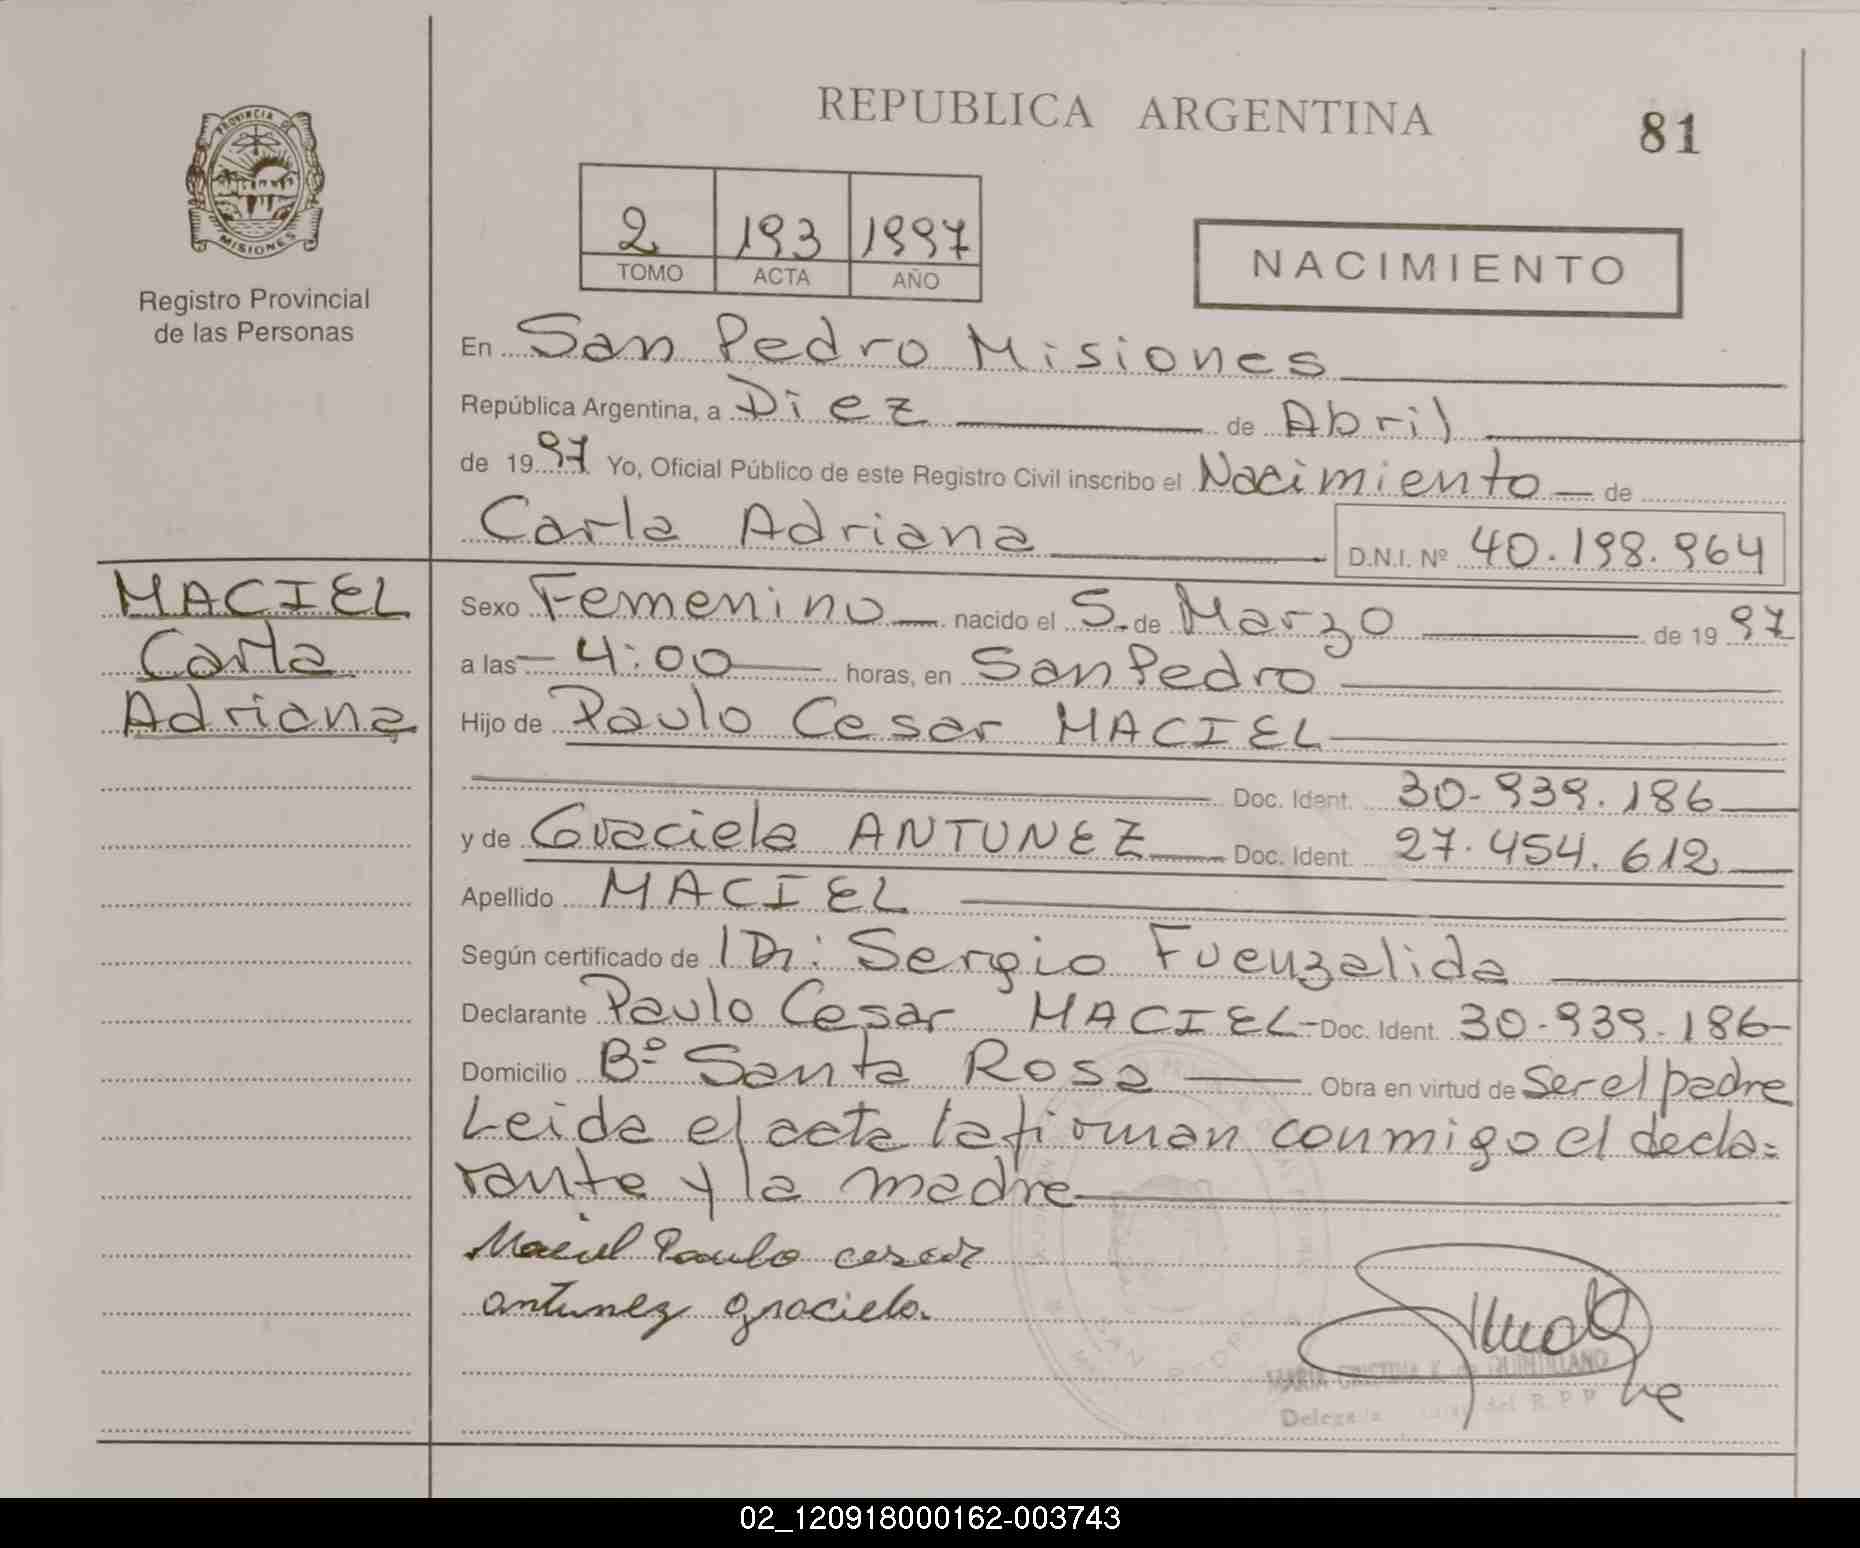 REPUBLICA ARGENTINA
81
PROVINCIA DE
MISIONES
Registro Provincial
de las Personas
2 193 1997
TOMO ACTA AÑO
NACIMIENTO
En San Pedro Misiones
República Argentina, a Diez de Abril
de 1997 Yo, Oficial Público de este Registro Civil inscribo el Nacimiento de
Carla Adriana D.N.I. Nº 40.198.964
MACIEL
Carla
Adriana
Sexo Femenino nacido el 5. de Marzo de 1997
a las 4:00 horas, en San Pedro
Hijo de Paulo Cesar MACIEL
Doc. Ident. 30.939.186
y de Graciela ANTUNEZ Doc. Ident. 27.454.612
Apellido MACIEL
Según certificado de Dr: Sergio Fuenzalida
Declarante Paulo Cesar MACIEL Doc. Ident. 30.939.186
Domicilio Bº Santa Rosa Obra en virtud de Ser el padre
Leida el acta la firman conmigo el decla=
rante y la madre
Maciel Paulo cesar
antunez graciela.
MARIA CRISTINA K. de QUINTILLANO
Delegada del R.P.P
SAN PEDRO
02_120918000162-003743